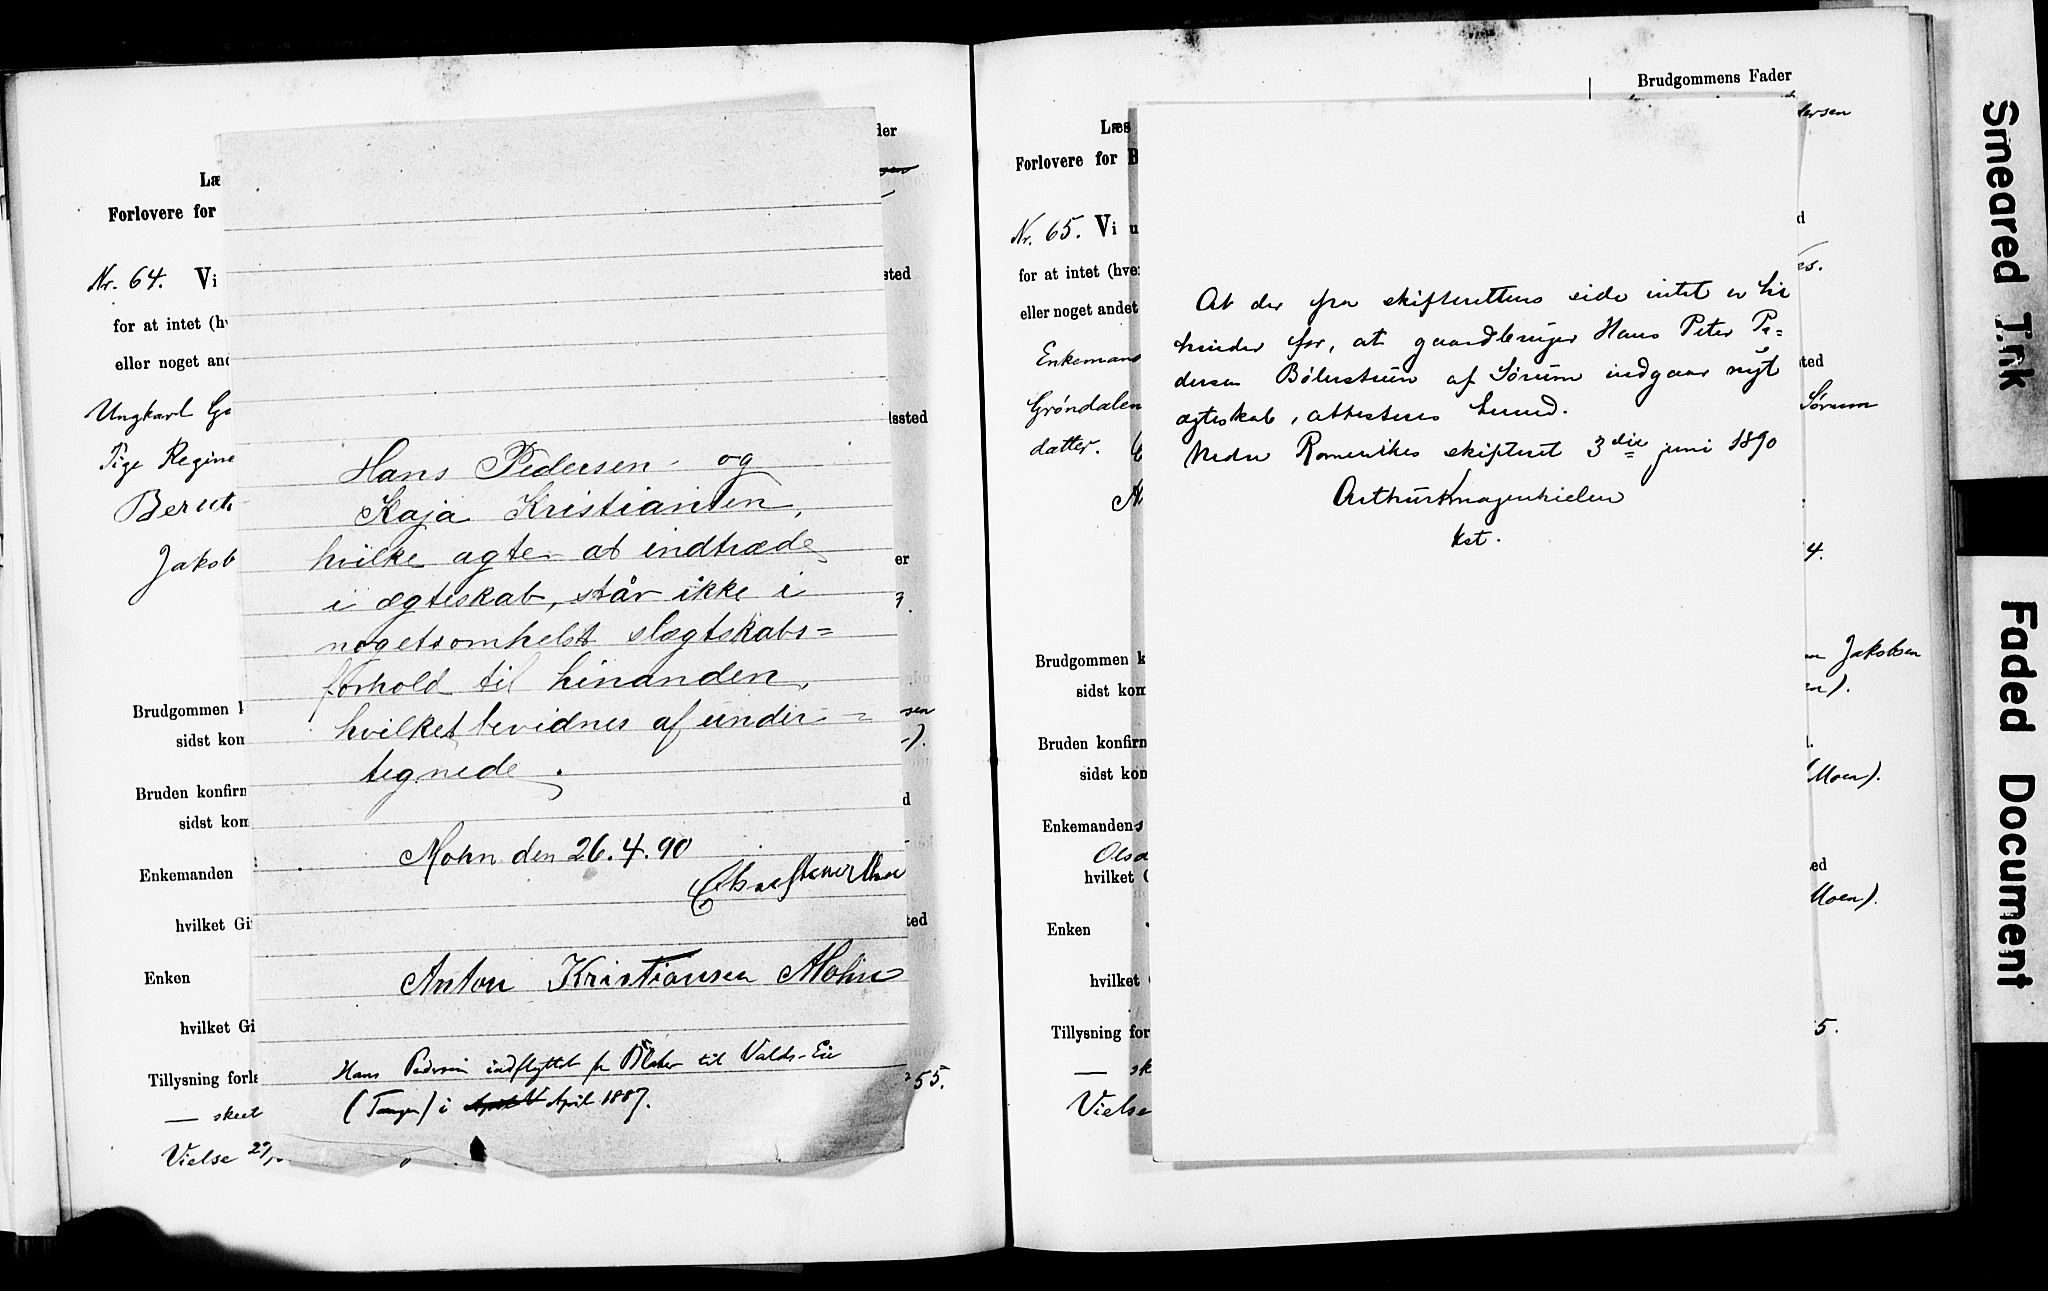 Læ
Forlovere for
der
Nr. 64. Vi
sted
for at intet (hv
eller noget and
Ungkarl
lssted
Tige Regine
Jakob
er
Brudgommen k
sidst kom
Bruden konfirm
sidst kom
Enkemanden
hvilket Gi
ted
Enken
hvilket Gi
Tillysning forla
255.
— skeet
Vielse
Hans Pedersen og
Kaja Kristiansen,
hvilke agter at indtræde
i ægteskab, står ikke i
nogetsomhelst slægtskabs=
forhold til hinanden,
hvilket bevidnes af under=
tegnede.
Mohn den 26.4.90
Anton Kristiansen Mohn
Hans Pedersen indflyttet fr Blaker til Valds-Eie
(Tangen) i April 1887.
Brudgommens Fader
Læs
dersen
Forlovere for B
Nr. 65. Vi u
for at intet (hve
eller noget andet
Enkemand
sted
Grøndalen
Sørum
datter.
4.
Brudgommen k
Jakobsen
sidst kom
Bruden konfirm
sidst kom
Moen).
Enkemandens
Olsd
hvilket G
Moen).
Enken
hvilket
Tillysning for
5.
— sk
Vielse
At der fra skifterettens side intet er til
hinder for, at gaardbruger Hans Peter Pe=
dersen Bølerstrum af Sørum indgaar nyt
ægteskab, attesteres herved.
Nedre Romerikes skifteret 3die juni 1890
kst.
Smeared T.rik
Faded Document